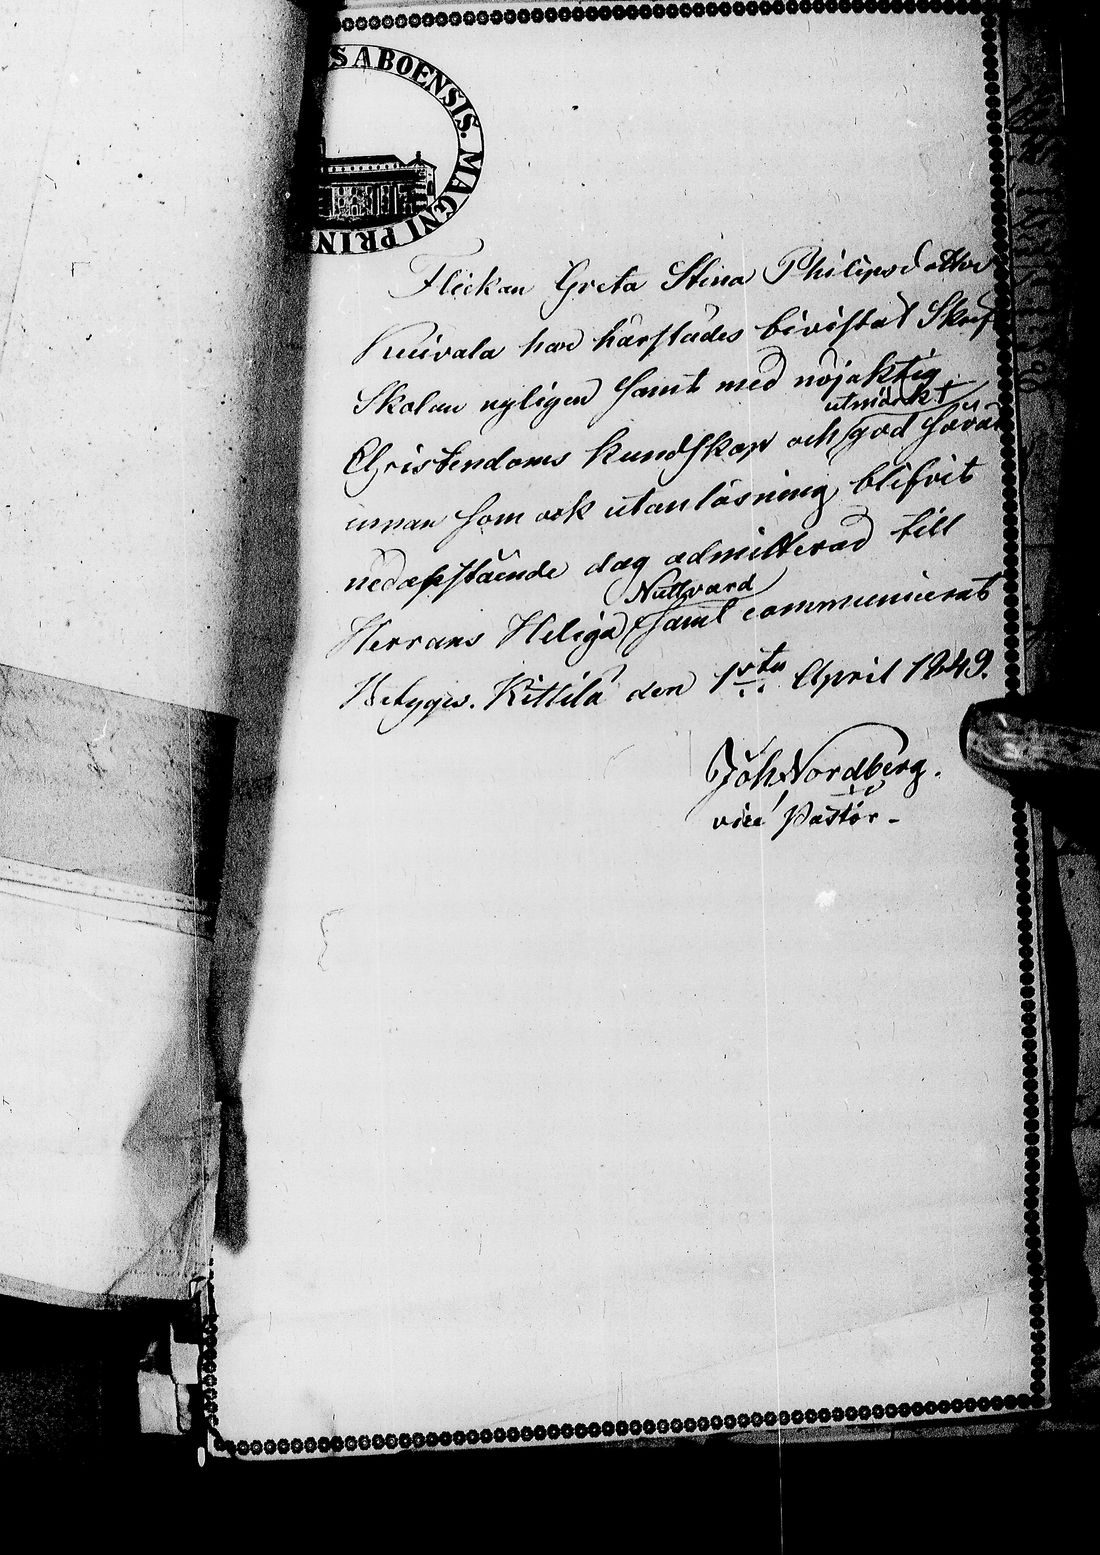 S ABOENSIS. MAGNI PRIN
Flickan Greta Stina Philipsdotter
Kuivala har härstädes bivistat Skrift
Skolan nyligen samt med nöjaktig
utmärkt
Christendoms kundskap och god förär
innan som ock utanläsning blifvit
nedanstående dag admitterad till
Nattvard
Herrans Heliga samt communicerat
Betygas. Kittilä den 1sta April 1849.
Joh Nordberg.
vice Pastor.